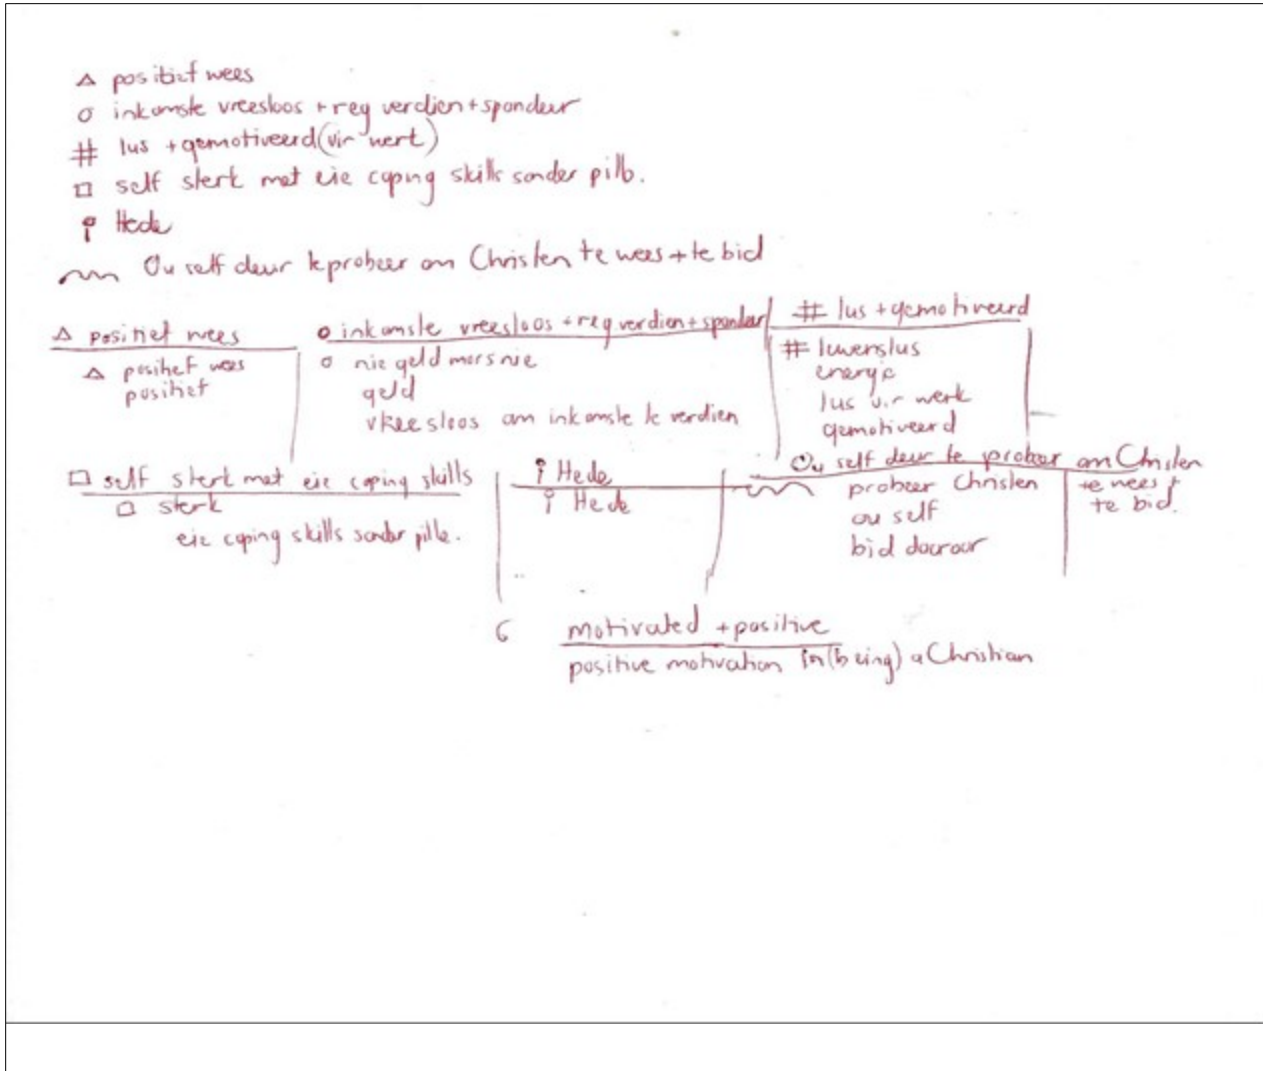 △ positief wees
o inkomste vreesloos + reg verdien + spandeer
# lus + gemotiveerd (vir werk)
□ self sterk met eie coping skills sonder pille.
Hede
Ou self deur te probeer om Christen te wees + te bid
△ positief wees
△ positief wees
positief
o inkomste vreesloos + reg verdien + spandeer
o nie geld mors nie
geld
vreesloos om inkomste te verdien
# lus + gemotiveerd
# lewenslus
energie
lus vir werk
gemotiveerd
□ self sterk met eie coping skills
□ sterk
eie coping skills sonder pille.
Hede
Hede
Ou self deur te probeer om Christen
te wees +
te bid.
probeer Christen
ou self
bid daaroor
6 motivated + positive
positive motivation in (being) a Christian